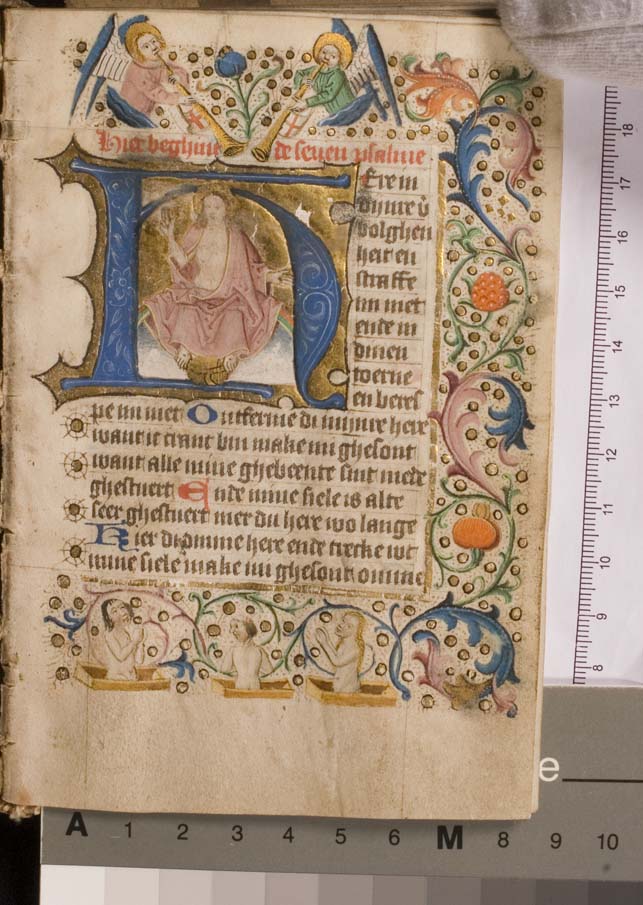 Hier beghine de seven psalme
Ere in
dinre v̄
bolghen
heit en
straffe
mi niet
ende in
dinen
toerne
en beres
pe mi niet Ontferme di minre here
want ic cranc bin make mi ghesont
want alle mine ghebeente sint mede
ghestuert Ende mine siele is alte
seer ghestuert mer du here wo lange
Kier di omme here ende trecke wt
mine siele make mi ghesont omme
18
17
16
15
14
13
12
11
10
9
8
e
A 1 2 3 4 5 6 M 8 9 10